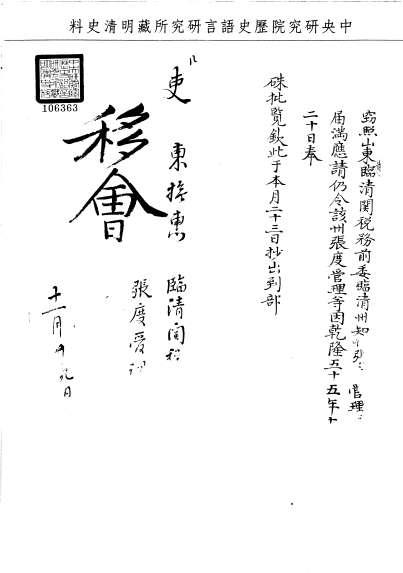 中央研究院歷史語言研究所藏明清史料
106363
竊照山東臨清関税務前委臨清州知 管理
届満應請仍令該州張度管理等因乾隆五十五年十
二十日奉
硃批覽欽此于本月二十三日抄出到部
吏
東撫惠
臨清関税
張度管理
移會
十一月 九日